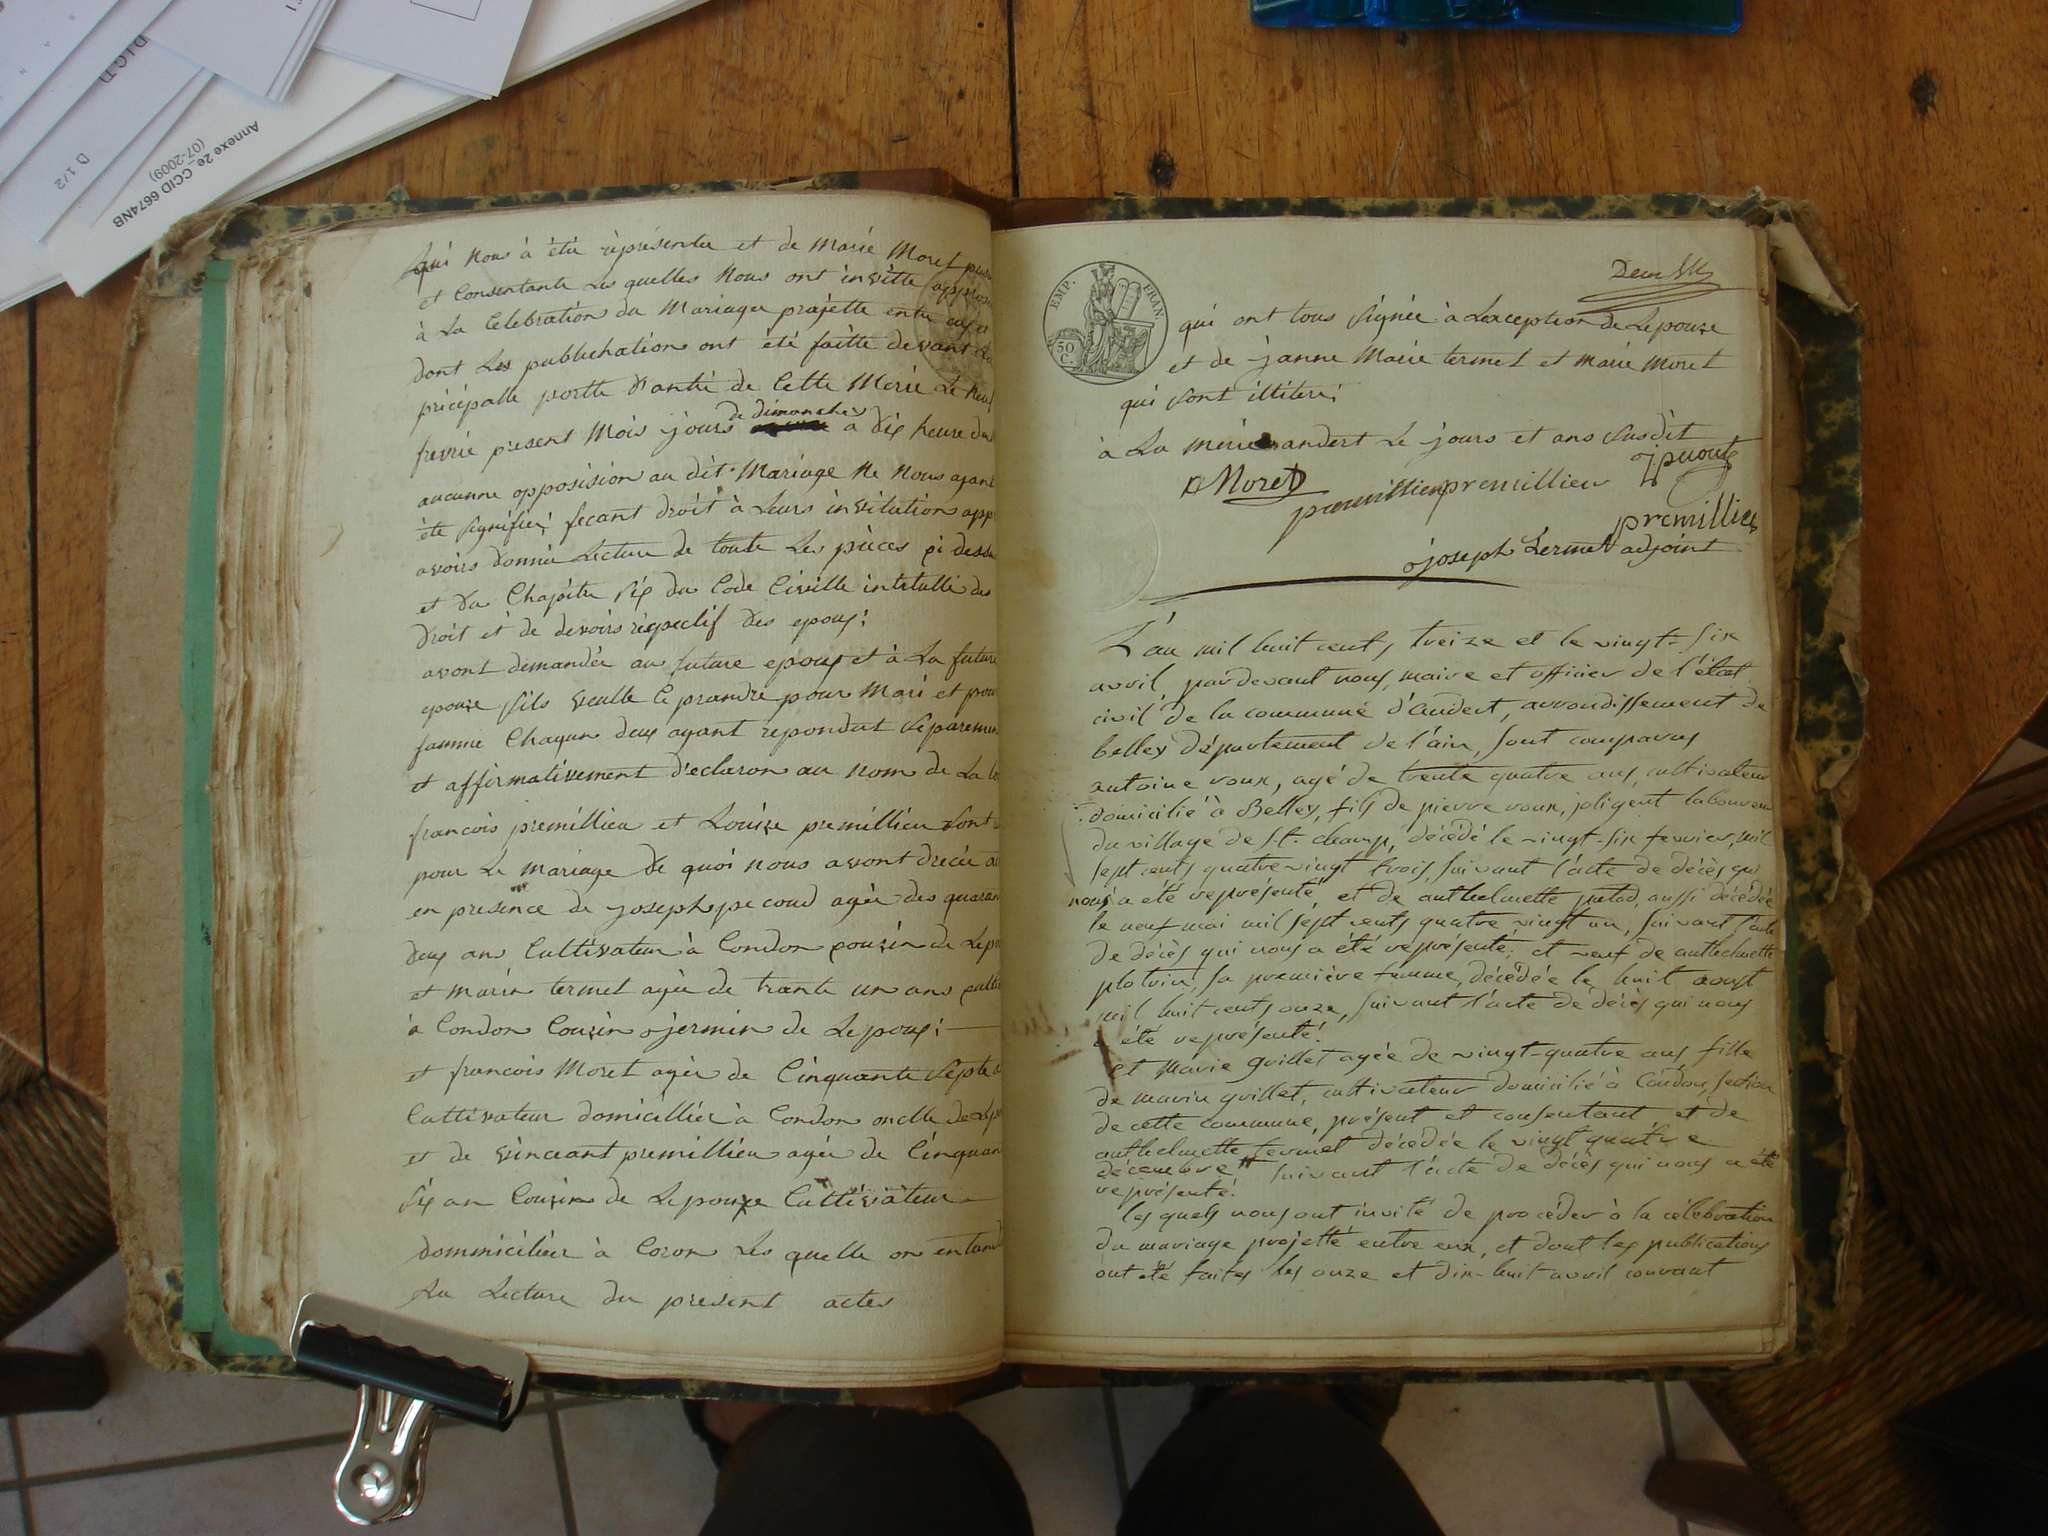 DICD
D 1/2
Annexe 2e_CCID 6674NB
(07-2009)
qui nous à été réprésentée et de Marie Moret
et Consentante Les quelles Nous ont invitté
à La Celebration du Mariage projette entre eux
dont Les publichation ont été faitte devant
précipalle portte d'antré de Cette Merie Le
fevrié présent Mois jours de dimanche a dix heure du
aucunne opposision au dit Mariage Ne Nous ayant
été signifier; fecant droit à Leurs invitation
avoirs donnée Lecture de toute Les pièces çi dessu
et du Chapitre six du Code Civille intitullé des
Droit et de devoirs réspectif des epoux;
avont demandée au future epoux et à La future
epouze sils veulle ce prandre pour Mari et pour
famme Chaqun deux ayant repondut séparemen
et affirmativement d'eclaron au nom de La
francois premillieu et Louize premillieu sont
pour Le mariage de quoi nous avont
en présence de joseph pecoud agée des
deux ans Cultivateur à Condon couzin de
et marin termet agée de trante un ans
à Condon Couzin jermin de Lepoux;
et francois Moret agée de Cinquante septe
Cultivateur domicillier à Condon oncle de
et de vinceant premillieu agée de Cinquan
six an Couzin de Lepouze Cultivateur
dommicilier à Coron Les quelle on
La Lecture du présent actes
EMP. FRAN
50 C.
qui ont tous signée à Lexception de Lepouze
et de janne Marie termet et Marie Moret
qui sont illiterè;
à La mérie andert Le jours et ans susdit
Moret
premillieu premillieu
premillieu
joseph termet adjoint
L'an mil huit cents treize et le vingt-six
avril pardevant nous, maire et officier de l'état
civil de la commune d'andert, arrondissement de
belley département de l'ain, sont comparus
antoine roux, agé de trente quatre ans, cultivateur
domicilié à Belley, fils de pierre roux, laboureur
du village de St. champ, décédé le vingt-six fevrier, mil
sept cents quatre vingt trois, suivant l'acte de décès qui
nous a été représenté, et de anthelmette aussi décédée
le neuf mai mil sept cents quatre vingt un, suivant l'acte
de décès qui nous a été représenté; et veuf de anthelmette
sa première femme, décédée le huit aoust
mil huit cents onze, suivant l'acte de décès qui nous
a été représenté.
et Marie guillet agée de vingt-quatre ans fille
de marin guillet, cultivateur domicilié à Condon, section
de cette commune, présent et consentant et de
anthelmette termet décédée le vingt quatre
décembre suivant l'acte de décès qui nous a été
représenté.
les quels nous ont invité de procéder à la célébration
du mariage projetté entre eux, et dont les publications
ont été faites les onze et dix-huit avril courant